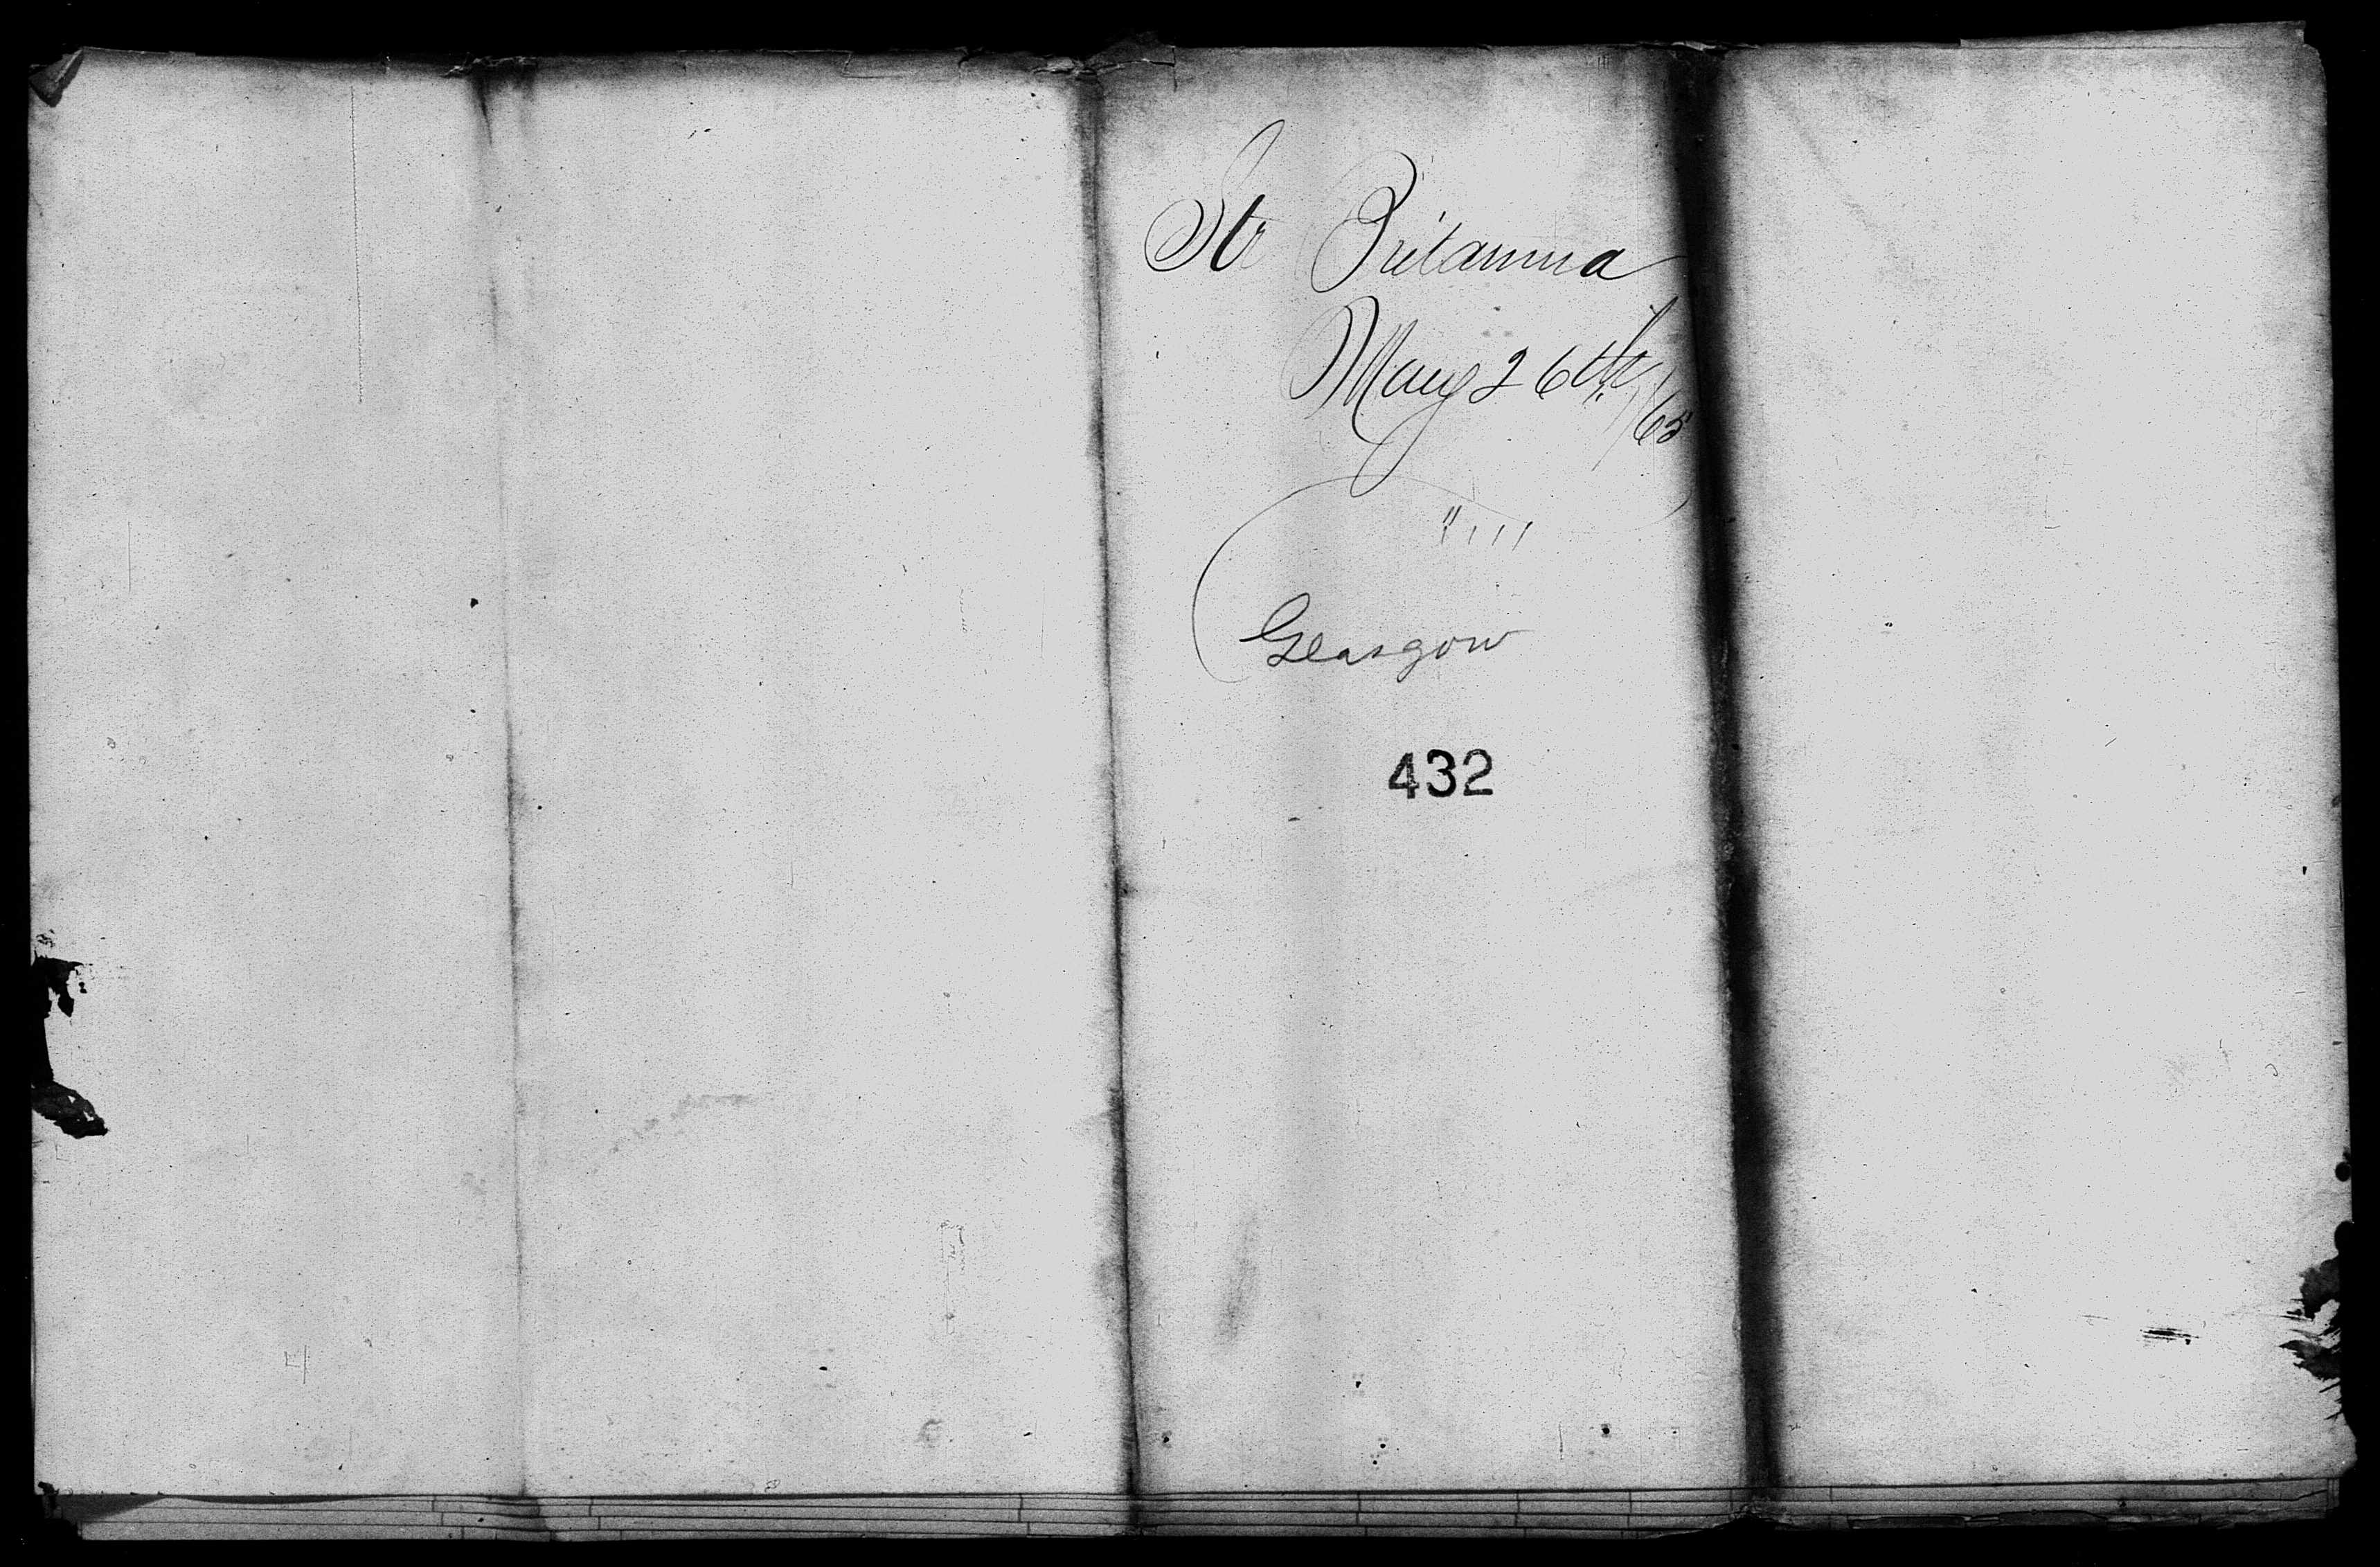 Str Britannia
May 26th
/65
" , , , ,
Glasgow
432